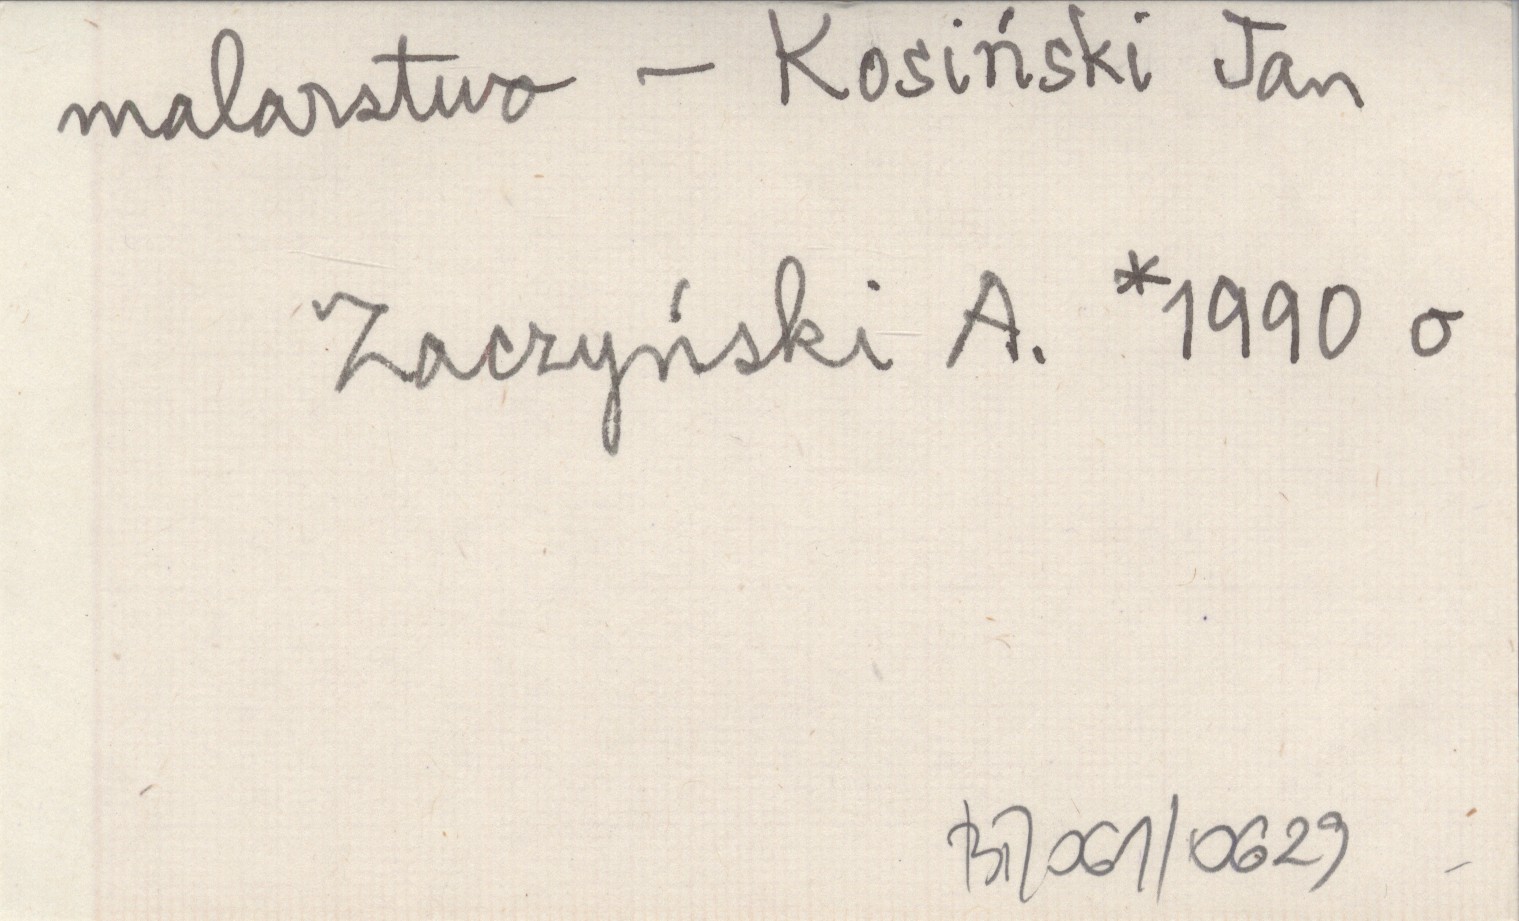 malarstwo – Kosiński Jan
Zaczyński A. *1990 o
061/0629